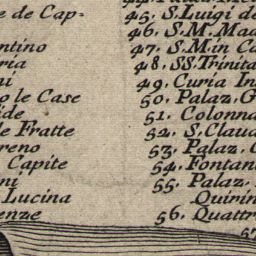 e de Cap-
ntino
ria
ni
o le Case
ide
le Fratte
reno
Capite
ni
Lucina
enze
45. S. Luigi de
46. S. M. Mad
47. S. M. in Ca
48. SS. Trinita
49. Curia In
50. Palaz. G
51. Colonna
52. S. Claud
53. Palaz. C
54. Fontan
55. Palaz.
Quirin
56. Quattr